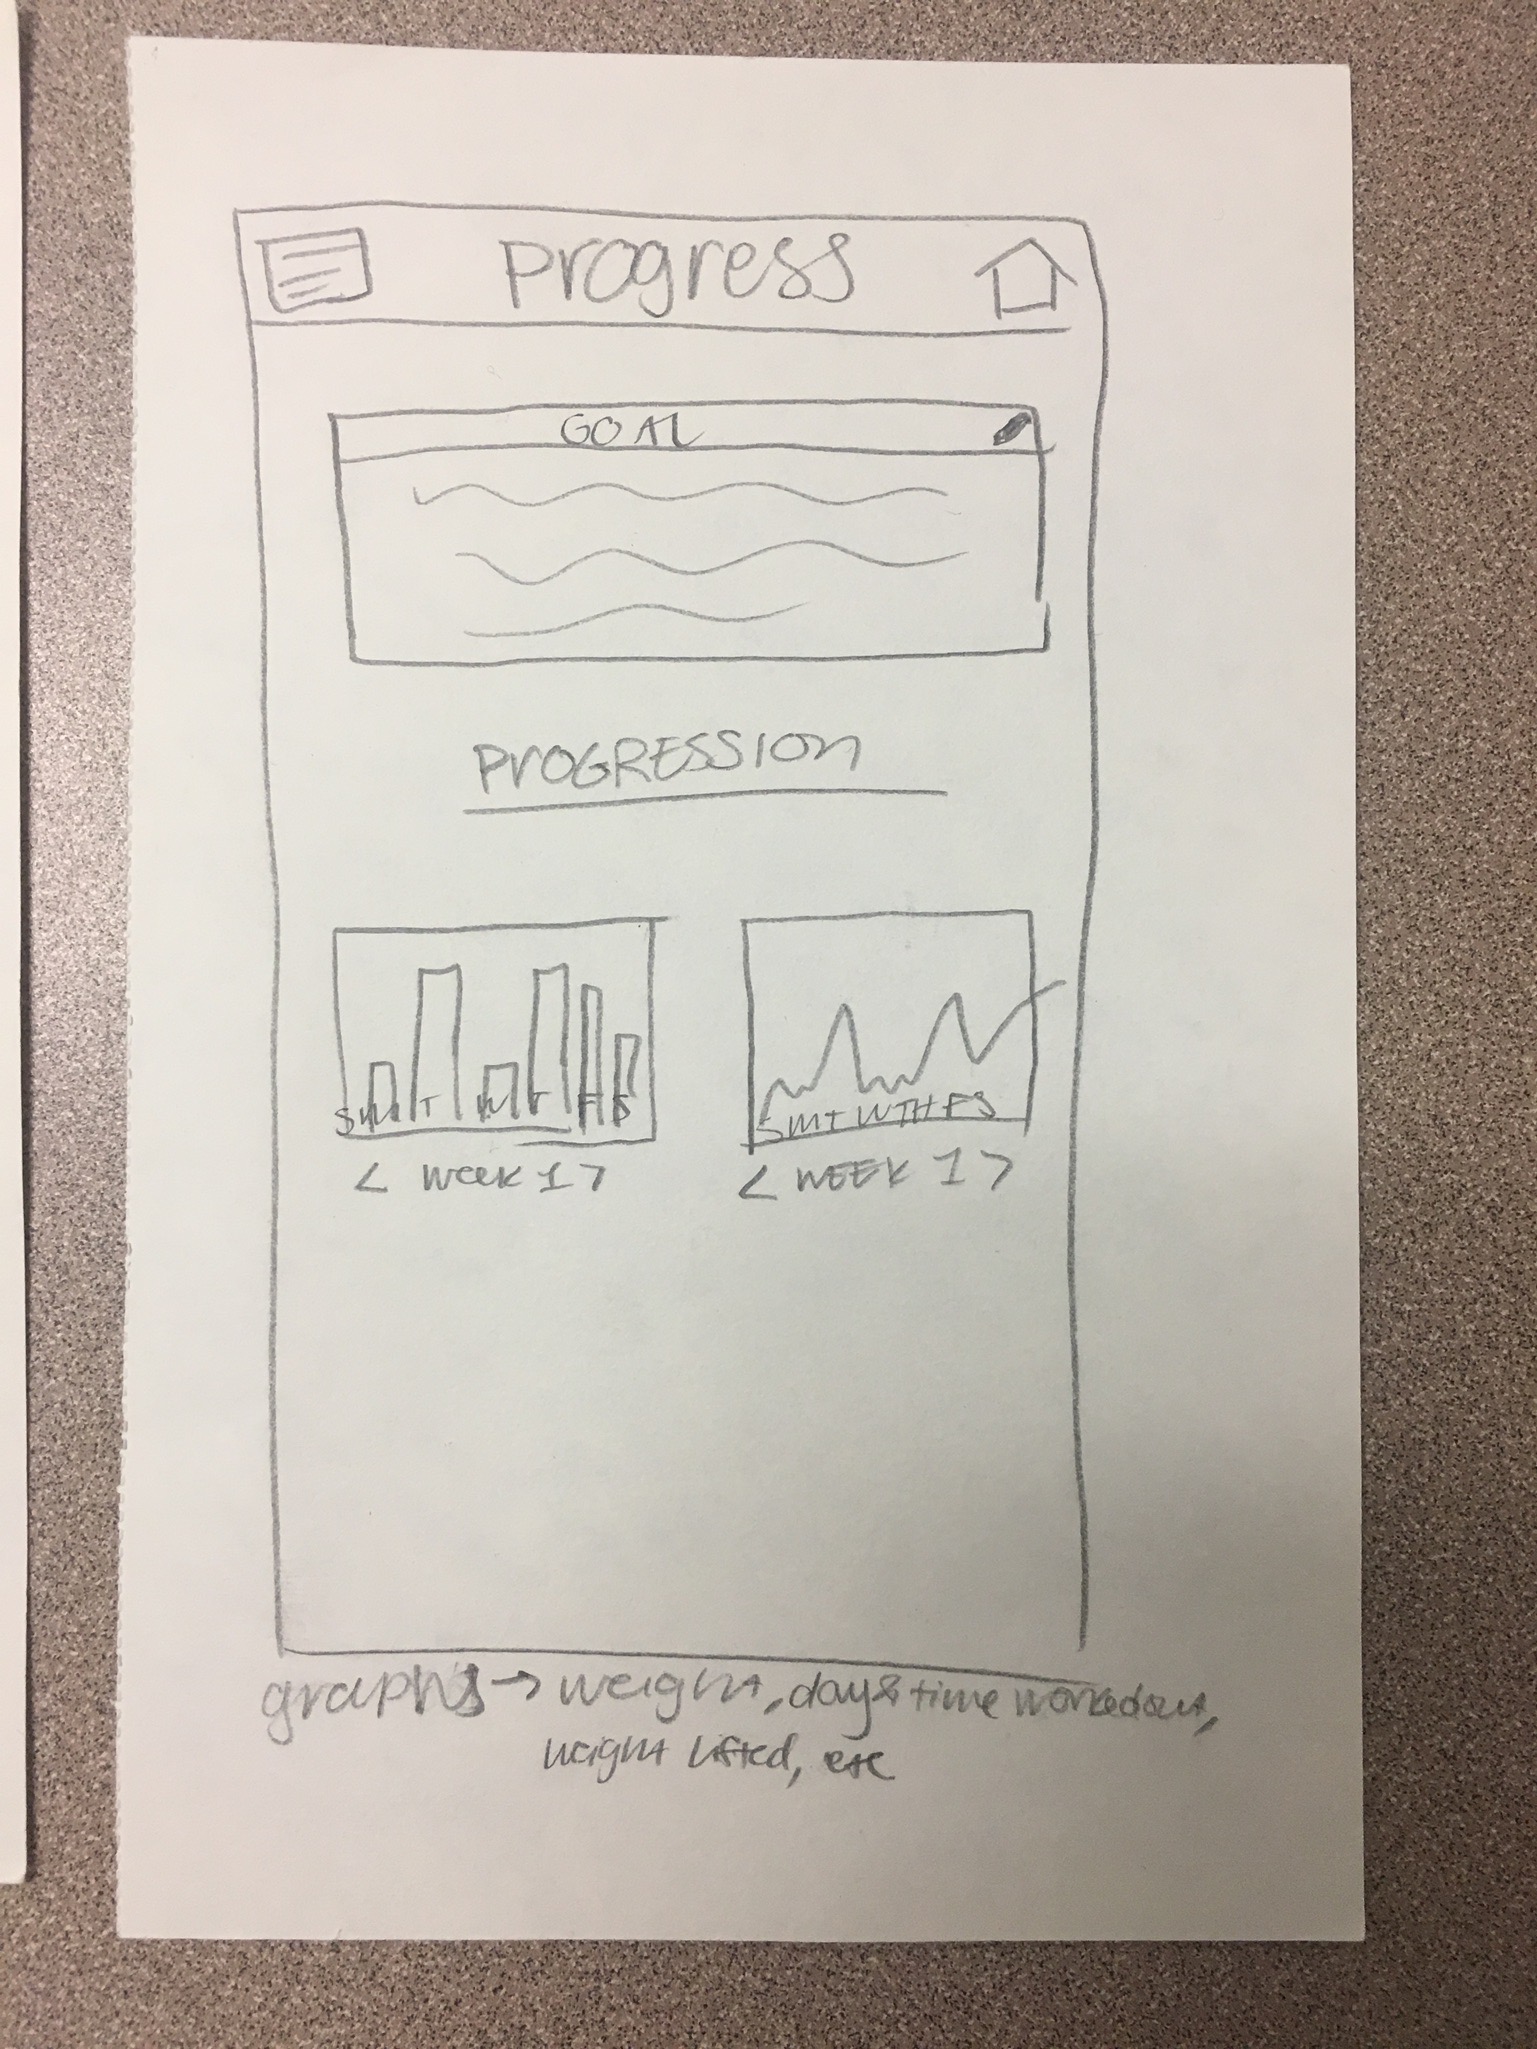 Progress
GOAL
PROGRESSION
S M T W T F S
S M T W TH F S
< WEEK 1 >
< WEEK 1 >
graphs → weight, day & time workedout,
weight lifted, etc